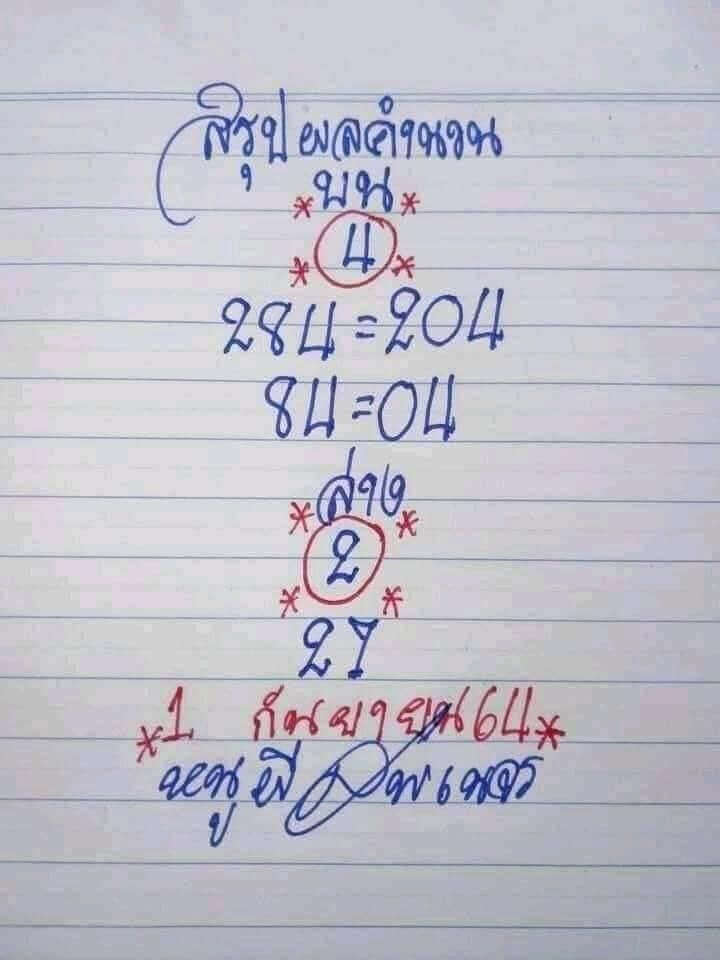 สรุปผลคำนวน
*บน*
*4*
284=204
84=04
*ล่าง*
2
* *
27
*1 กันยายน64*
หนูผี พเนจร